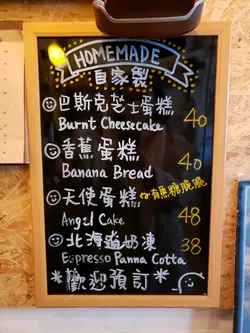 HOMEMADE
自家製
巴斯克芝士蛋糕
Burnt Cheesecake 40
香蕉蛋糕 40
Banana Bread
天使蛋糕 仲有焦糖脆脆
Angel Cake 48
北海道奶凍 38
Espresso Panna Cotta
*歡迎預訂*